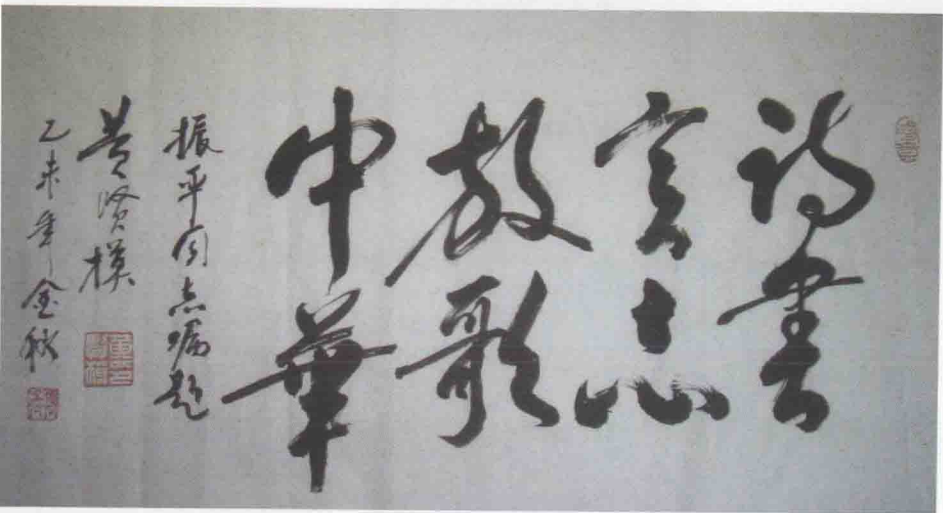 詩書
言志
放歌
中華
振平同志嘱题
黄賢模
乙未年金秋